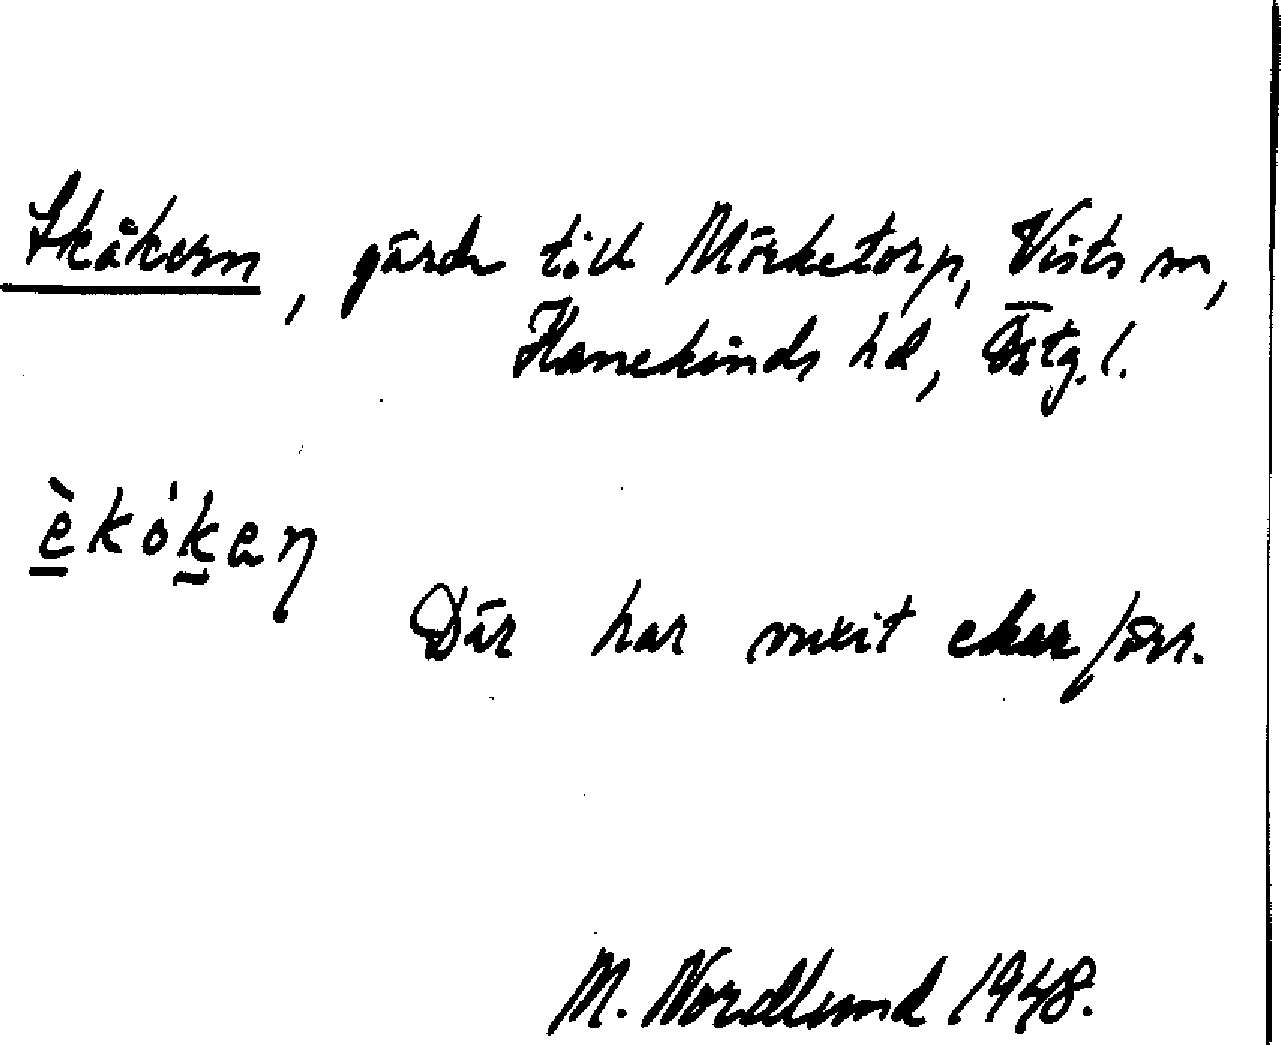 Ekåkern, gärde till Mörketorp, Vists sn,
Hanekinds hd, Östg. l.
èkókaɳ
Där har vuxit ekar förr.
M. Nordlund 1948.